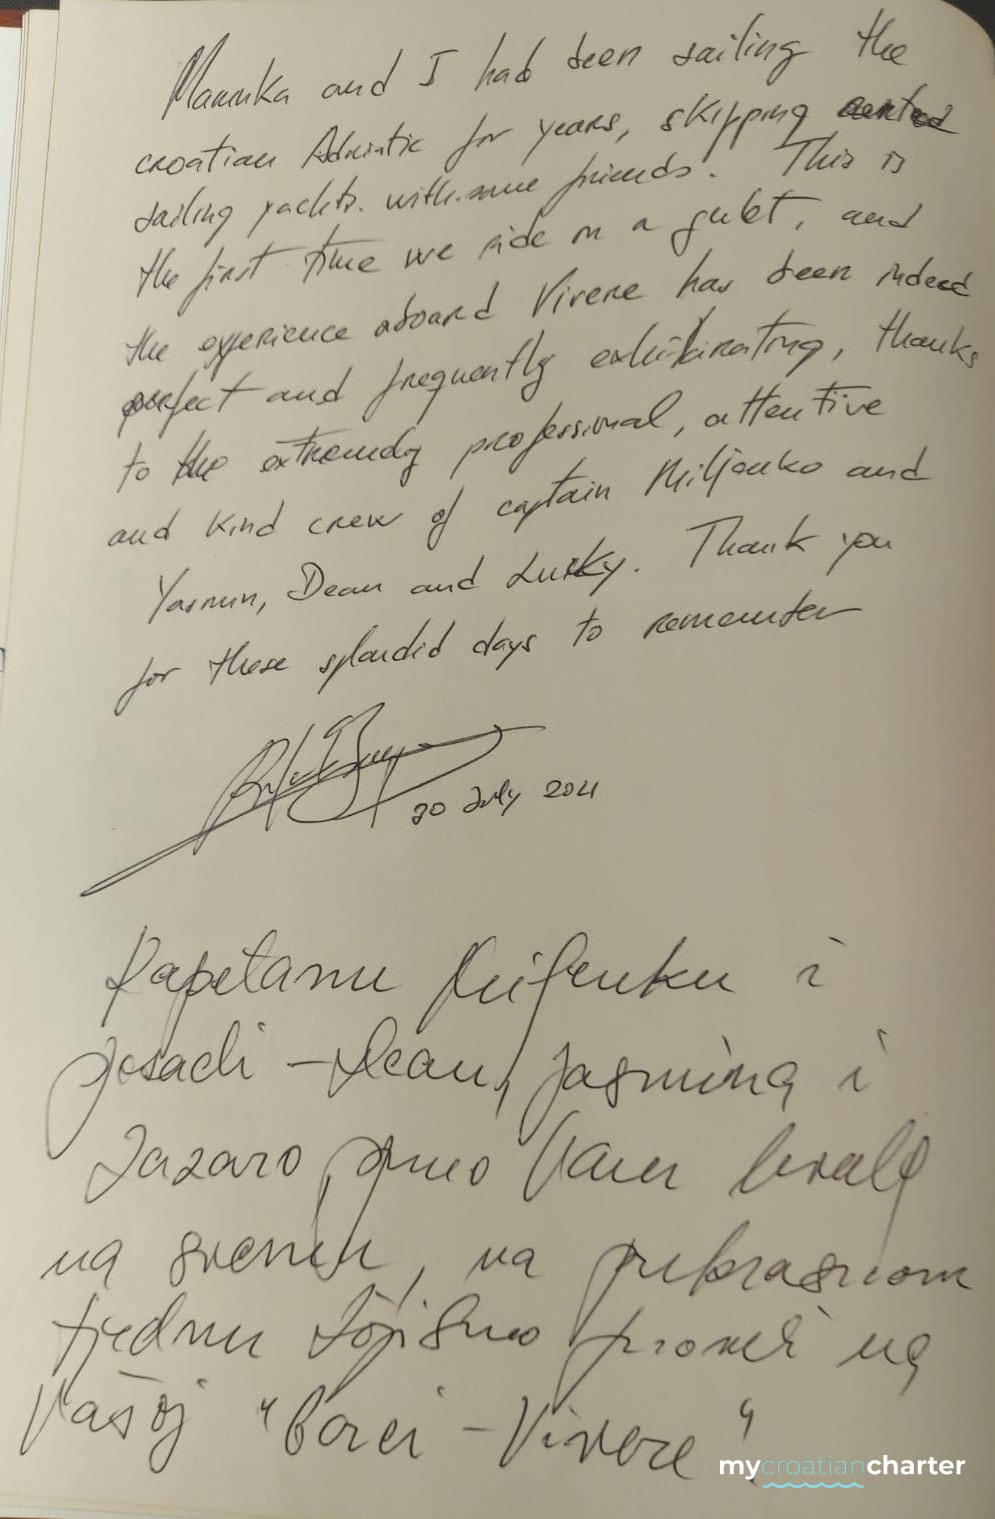 Marinka and I had been sailing the
croatian Adriatic for years, skipping rented
sailing yachts with some friends. This is
the first time we ride on a gulet, and
the experience aboard Vivere has been indeed
perfect and frequently exhilarating, thanks
to the extremely professional, attentive
and kind crew of captain Miljenko and
Yasmin, Dean and Luiky. Thank you
for these splendid days to remember
30 July 2021
Kapetanu Miljenku i
posadi - Dean, Jasmina i
Lazaro, puno Vam hvala
na svemu, na prekrasnom
tjednu što smo proveli na
Vašoj "barci - Vivere"
mycroatiancharter